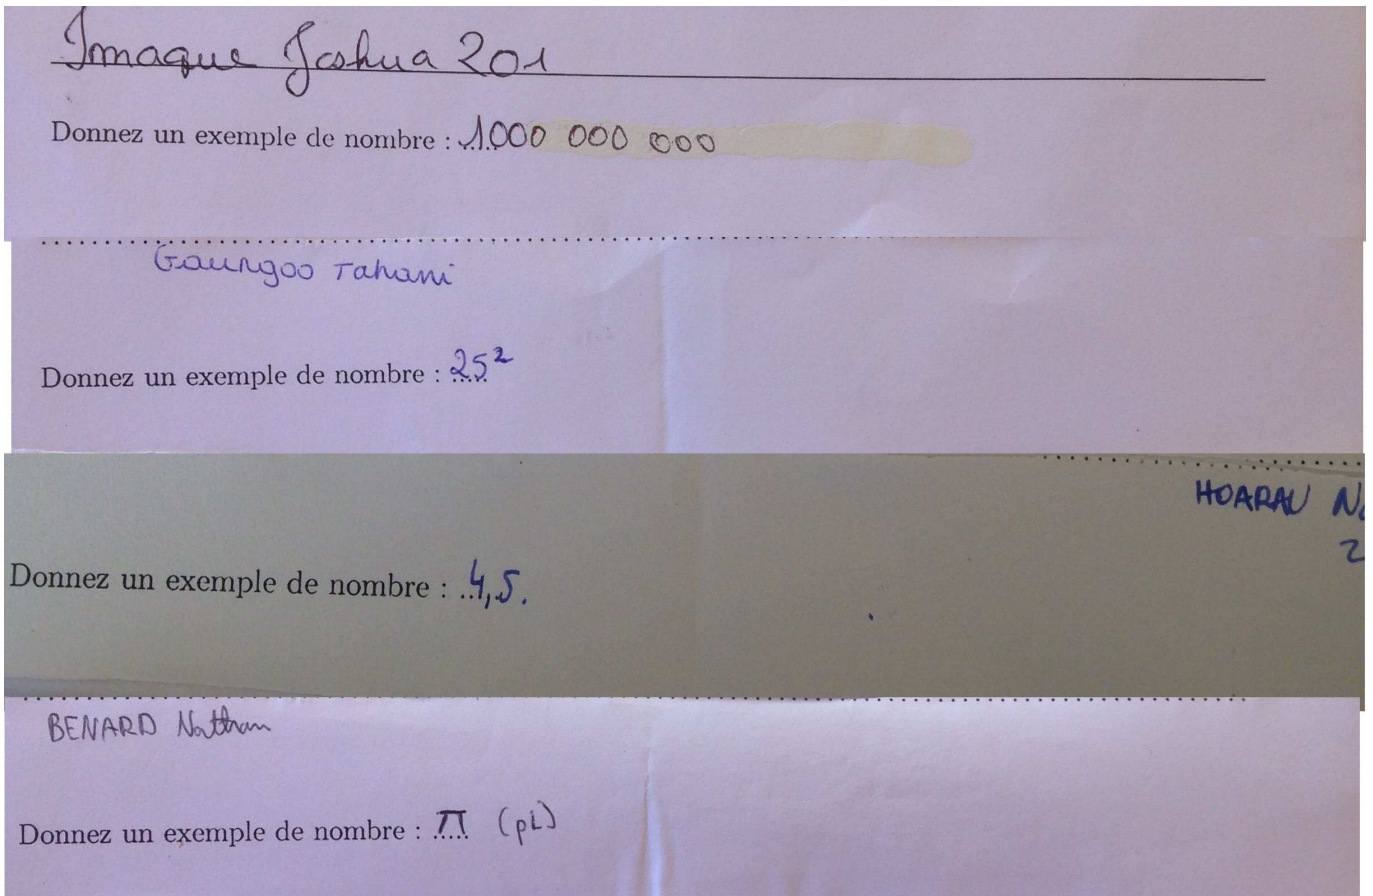 Imaque Joshua 201
Donnez un exemple de nombre : 1000 000 000
Gaungoo Tahani
Donnez un exemple de nombre : 25²
HOARAU
2
Donnez un exemple de nombre : 4,5.
BENARD Nathan
Donnez un exemple de nombre : π (pi)